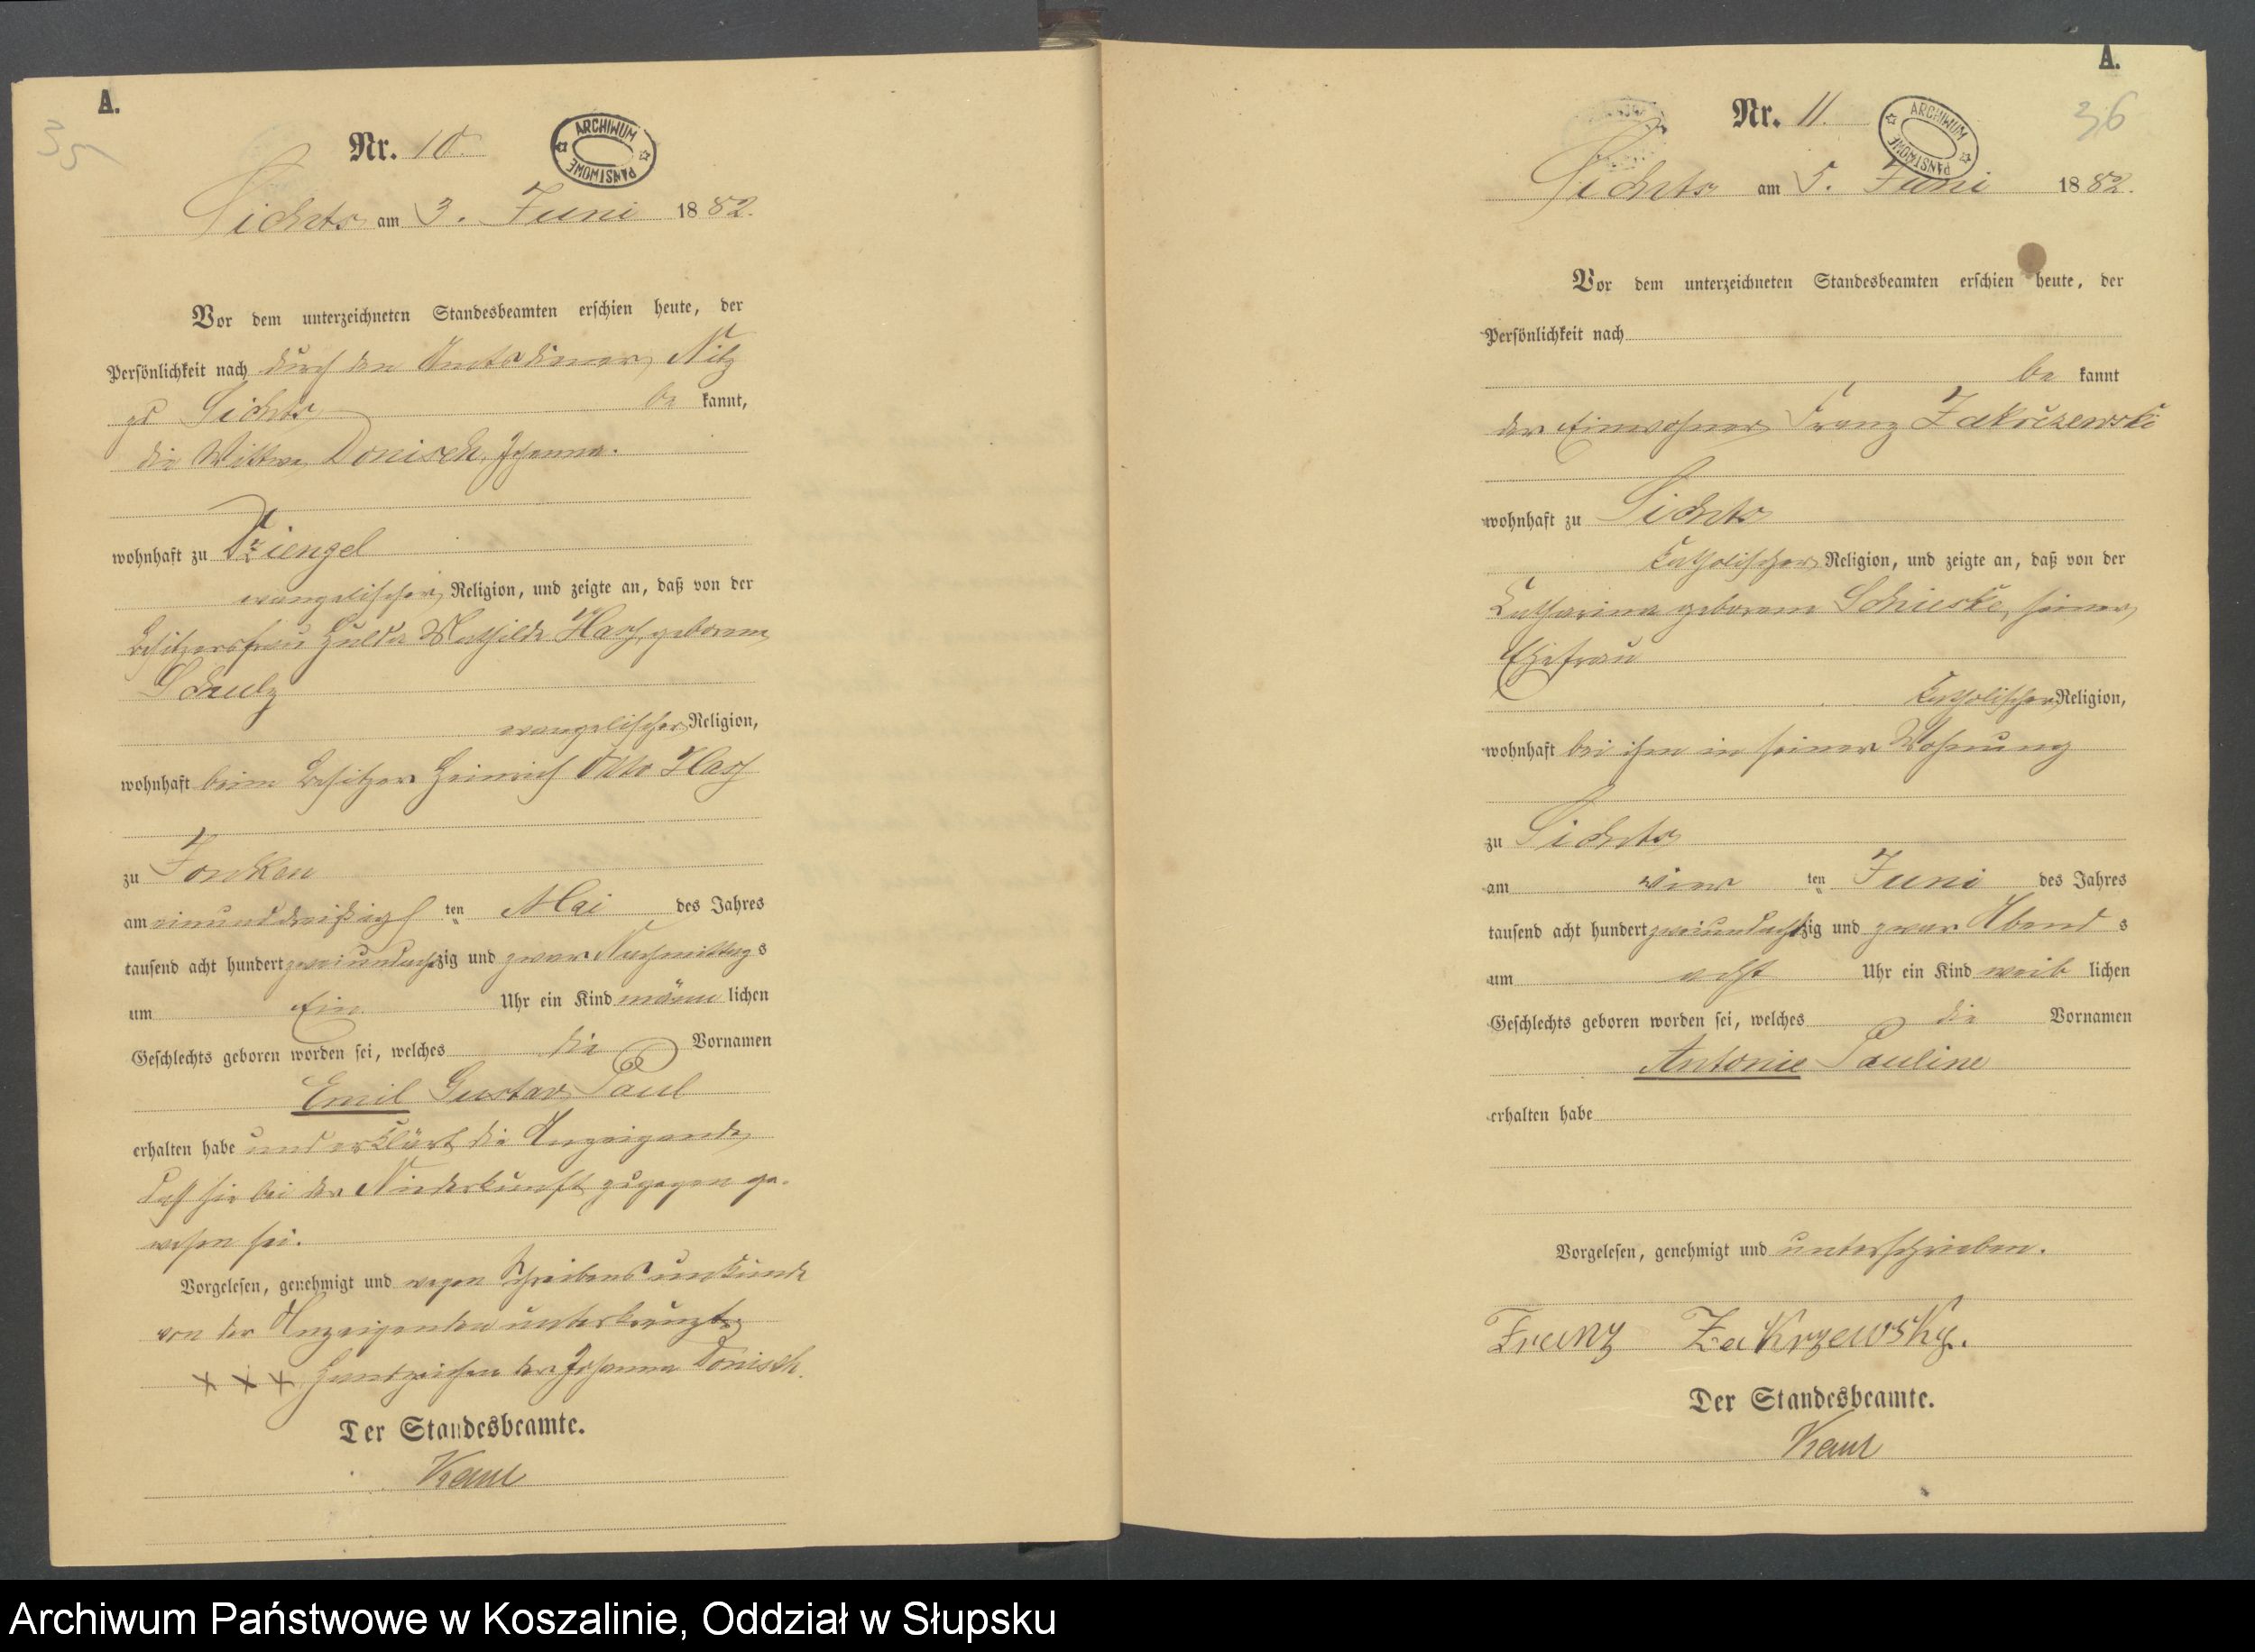 A.
35
Nr. 10.
ARCHIWUM PAŃSTWOWE
Sichts am 3. Juni 1882.
Vor dem unterzeichneten Standesbeamten erschien heute, der
Persönlichkeit nach durch den Amtsdiener Nitz
zu Sichts be kannt,
die Wittwe Donisch, Johanna.
wohnhaft zu Dziengel
evangelischer Religion, und zeigte an, daß von der
Besitzersfrau Hulda Mathilde geborene
Schulz
evangelischer Religion,
wohnhaft beim Besitzer Heinrich Otto
zu
am einunddreißigs ten Mai des Jahres
tausend acht hundert zweiundachtzig und zwar Nachmittags
um Ein Uhr ein Kind männ lichen
Geschlechts geboren worden sei, welches die Vornamen
Emil Gustav Paul
erhalten habe und erklärt die Anzeigende,
daß sie bei der Niederkunft zugegen ge-
wesen sei.
Vorgelesen, genehmigt und wegen Schreibensunkunde
von der Anzeigenden unterkreuzt
+ + + Handzeichen der Johanna Donisch.
Der Standesbeamte.
A.
36
Nr. 11.
ARCHIWUM PAŃSTWOWE
Sichts am 5. Juni 1882.
Vor dem unterzeichneten Standesbeamten erschien heute, der
Persönlichkeit nach
be kannt
der Einwohner Franz Zakrzewski
wohnhaft zu Sichts
katholischer Religion, und zeigte an, daß von der
Katharina geborene seiner
Ehefrau
katholischer Religion,
wohnhaft bei ihm in seiner Wohnung
zu Sichts
am vier ten Juni des Jahres
tausend acht hundert zweiundachtzig und zwar Abend s
um acht Uhr ein Kind weib lichen
Geschlechts geboren worden sei, welches die Vornamen
Antonie Pauline
erhalten habe
Vorgelesen, genehmigt und unterschrieben.
Franz Zakrzewsky.
Der Standesbeamte.
Archiwum Państwowe w Koszalinie, Oddział w Słupsku